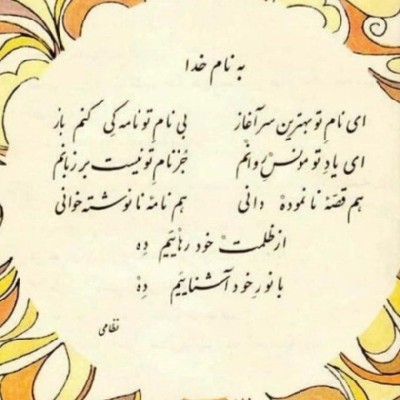 به نام خدا
ای نامِ تو بهترین سرآغاز بی نامِ تو نامه کِی کنم باز
ای یادِ تو مونسِ روانم جُز نامِ تو نیست بر زبانم
هم قصّهٔ نانموده دانی هم نامهٔ نانوشته خوانی
از ظلمتِ خود رهاییَم دِه
با نورِ خود آشناییَم دِه
نظامی